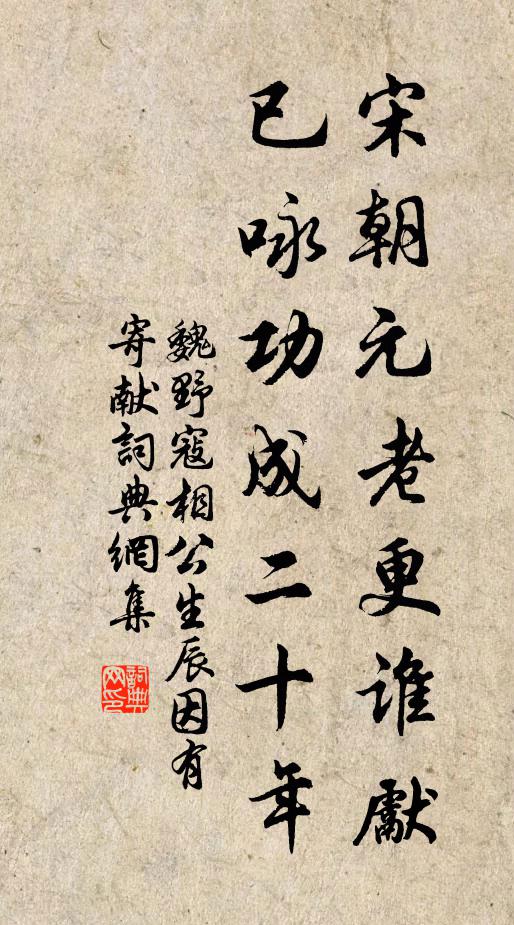 宋朝元老更谁獻
已咏功成二十年
魏野寇相公生辰因有
寄献詞典網集
詞典网印